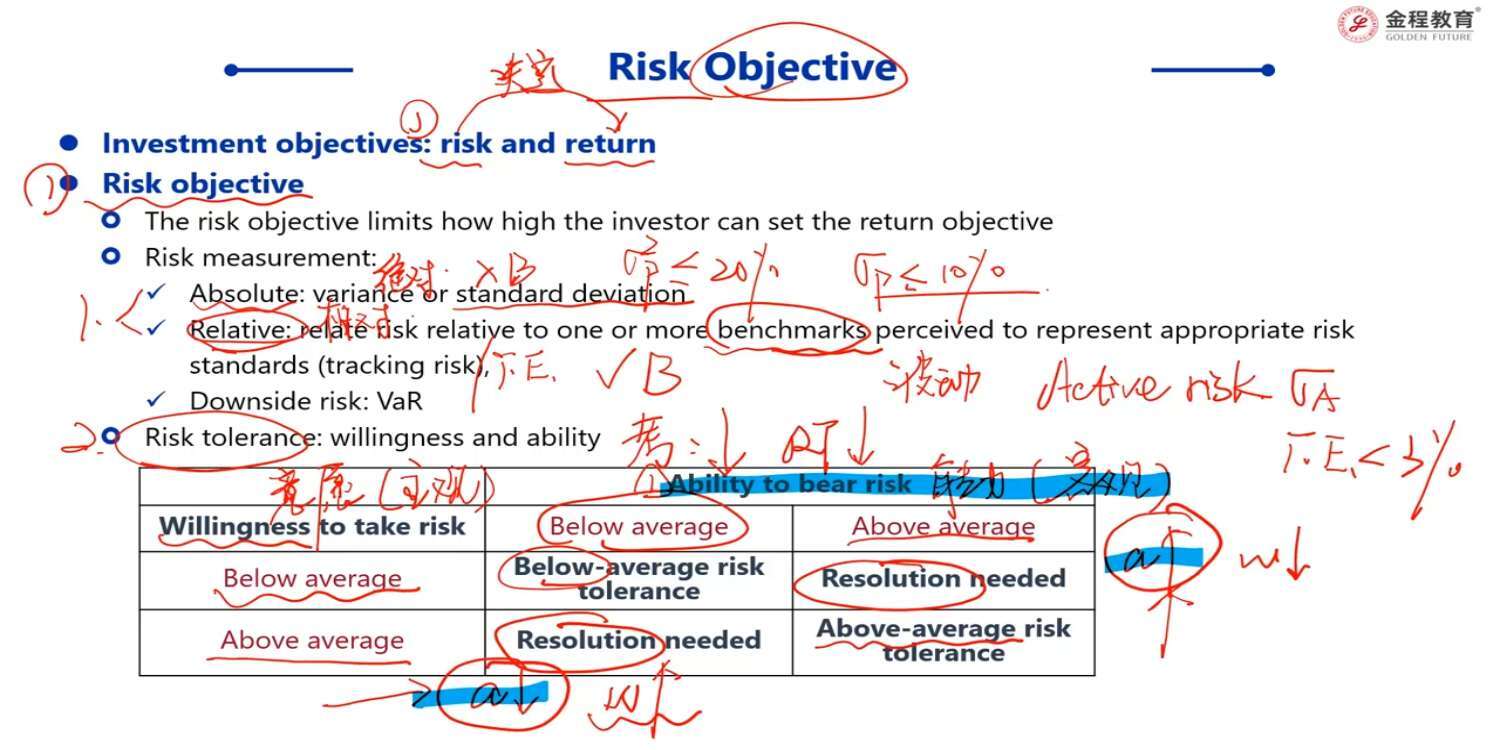 金程教育
GOLDEN FUTURE
决定
Risk Objective
①
Investment objectives: risk and return
① Risk objective
The risk objective limits how high the investor can set the return objective
Risk measurement:
绝对: ×B σ²P ≤ 20% σP ≤ 10%
1. <
Absolute: variance or standard deviation
相对:
Relative: relate risk relative to one or more benchmarks perceived to represent appropriate risk
standards (tracking risk),
T.E. √B 波动 Active risk σA
Downside risk: VaR
T.E. < 3%
2. Risk tolerance: willingness and ability
考: ↓ RT ↓
意愿 (主观)
① Ability to bear risk 能力 (客观)
Willingness to take risk
Below average
Above average
Below average
Below-average risk
tolerance
Resolution needed
a↑ w↓
Above average
Resolution needed
Above-average risk
tolerance
→ a↓ w↑